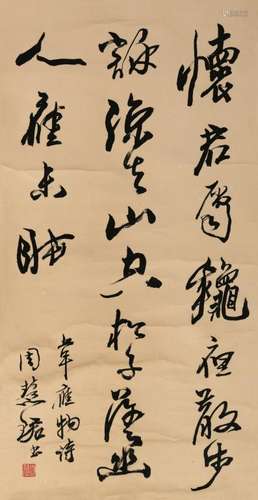 懷君屬龝夜散步
詠涼天山空松子落幽
人應未眠
韋應物詩
周慧珺书